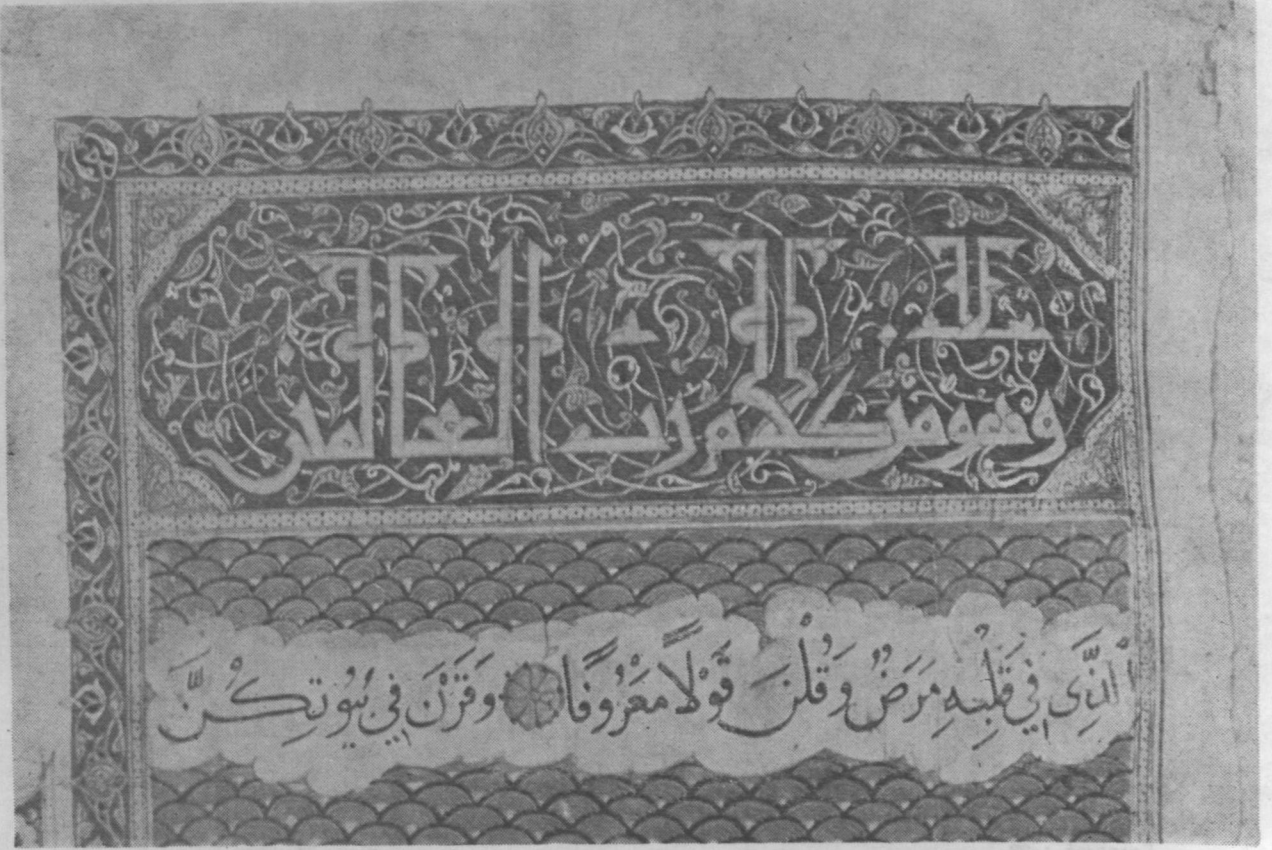 وهو من كلام رب العالمين
الَّذِى فِي قَلْبِهِ مَرَضٌ وَقُلْنَ قَوْلًا مَعْرُوفًا ۝ وَقَرْنَ فِي بُيُوتِكُنَّ